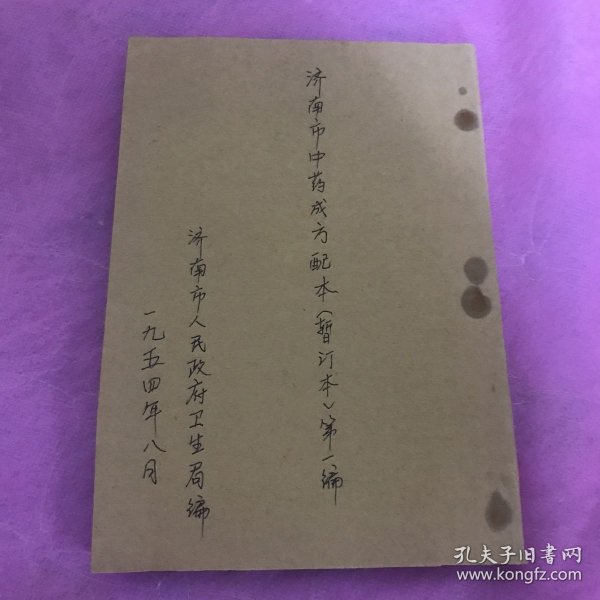 济南市中药成方配本(暂订本)第一编
济南市人民政府卫生局编
一九五四年八月
孔夫子旧书网
www.kongfz.com